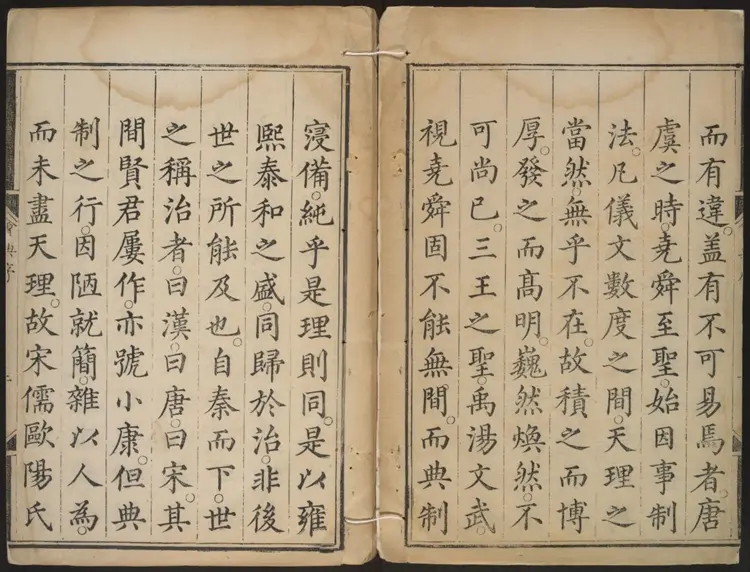 而有違。盖有不可易焉者。唐
虞之時。堯舜至聖。始因事制
法。凡儀文數度之間。天理之
當然。無乎不在。故積之而博
厚。發之而髙明。巍然煥然。不
可尚已。三王之聖。禹湯文武。
視堯舜固不能無間。而典制
寖備。純乎是理則同。是以雍
熙泰和之盛。同歸於治。非後
世之所能及也。自秦而下。世
之稱治者。曰漢。曰唐。曰宋。其
間賢君屢作。亦號小康。但典
制之行。因陋就簡。雜以人為。
而未盡天理。故宋儒歐陽氏
會典序